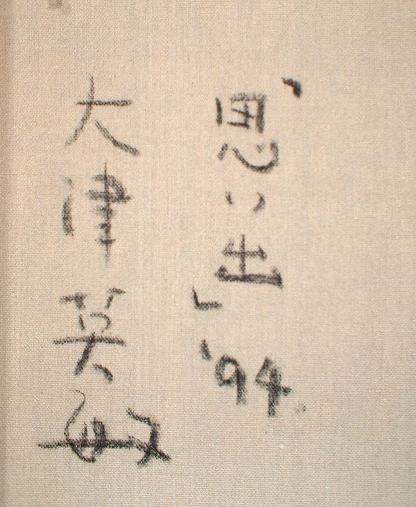 「思い出」'94.
大津英敏